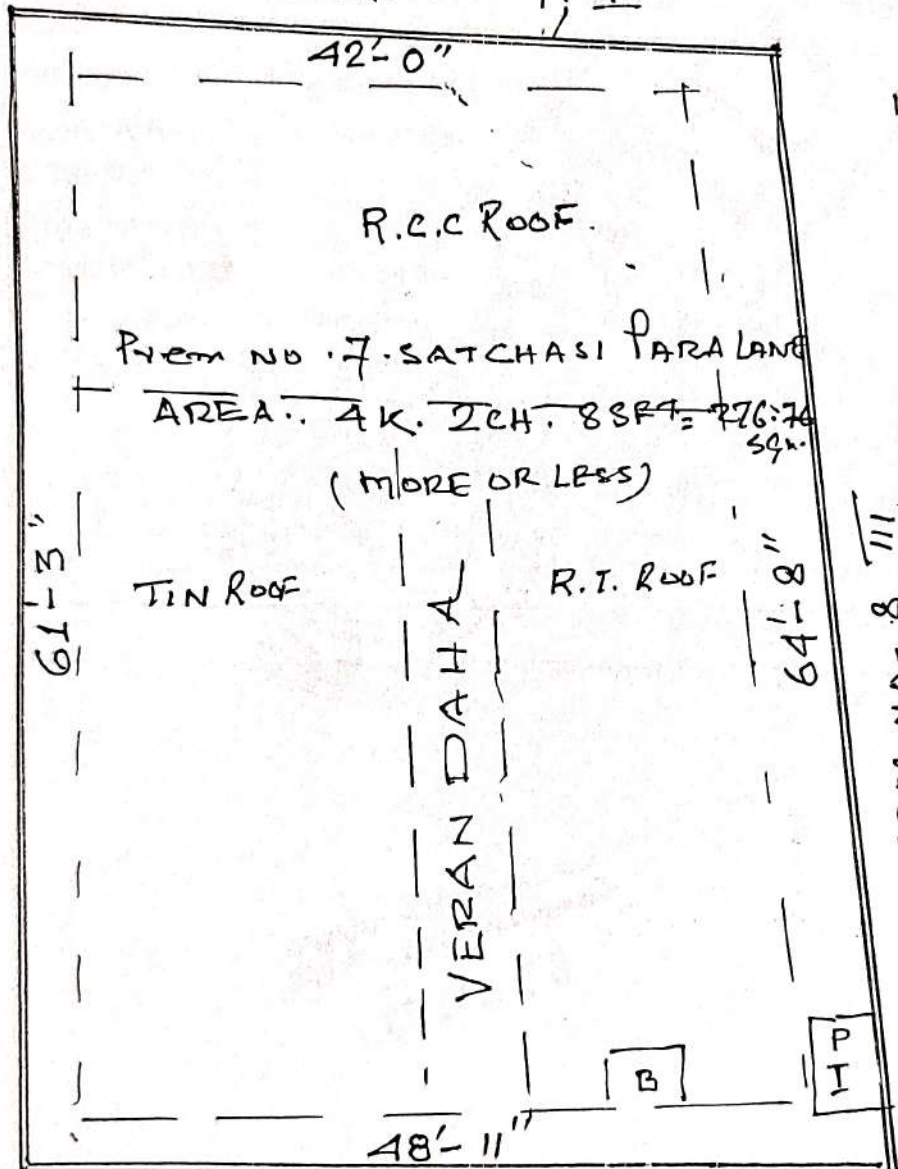 42'-0"
R.C.C ROOF
Prem NO. 7. SATCHASI PARA LANE
AREA. 4K. 2CH. 8SFT = 276.76
sqm.
(MORE OR LESS)
61'-3"
TIN ROOF
VERANDAHA
R.T. ROOF
64'-8"
8
B
P
I
48'-11"